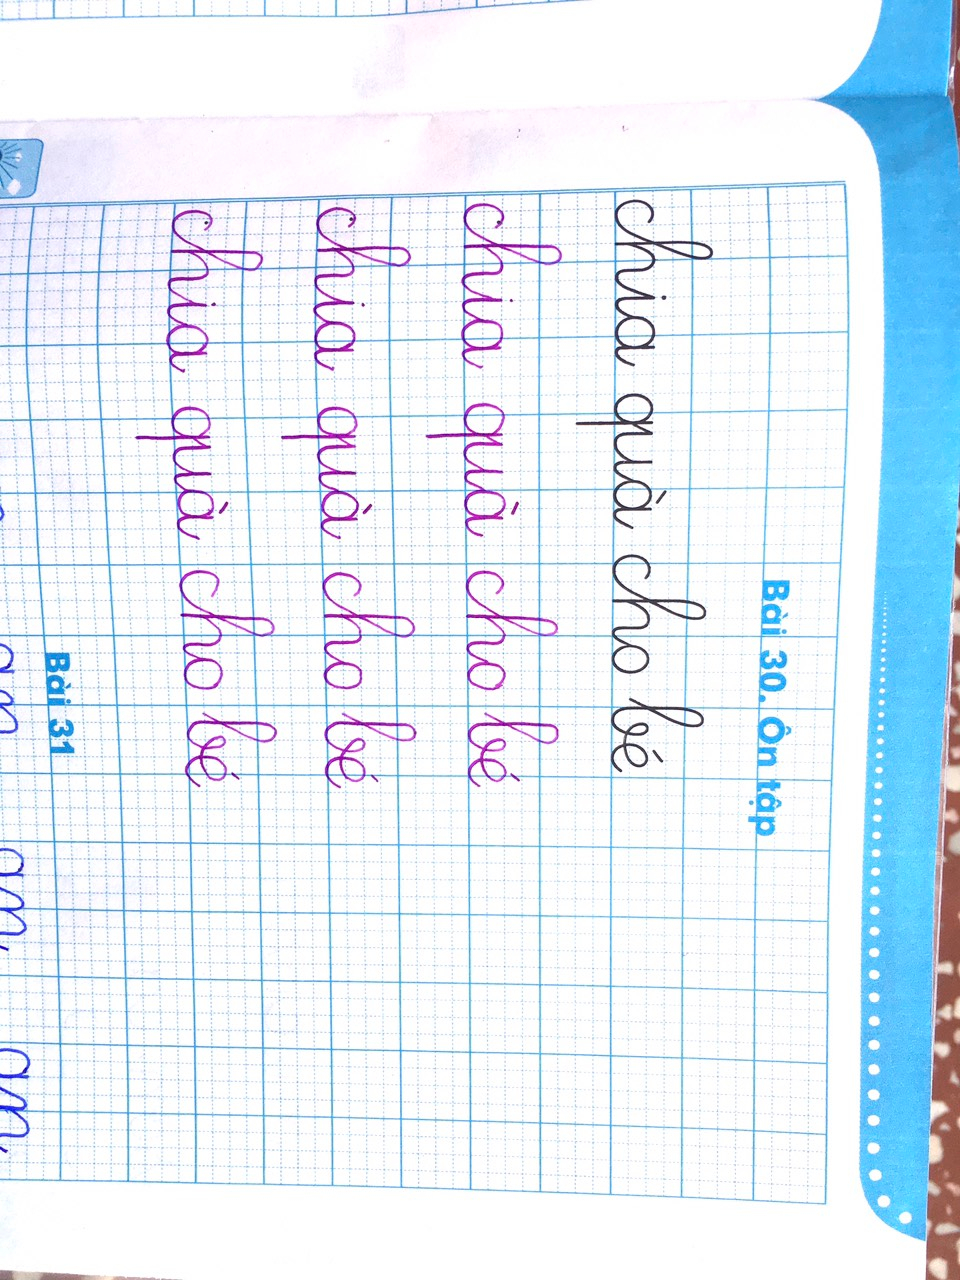 Bài 30. Ôn tập
chia quà cho bé
chia quà cho bé
chia quà cho bé
chia quà cho bé
Bài 31
am am